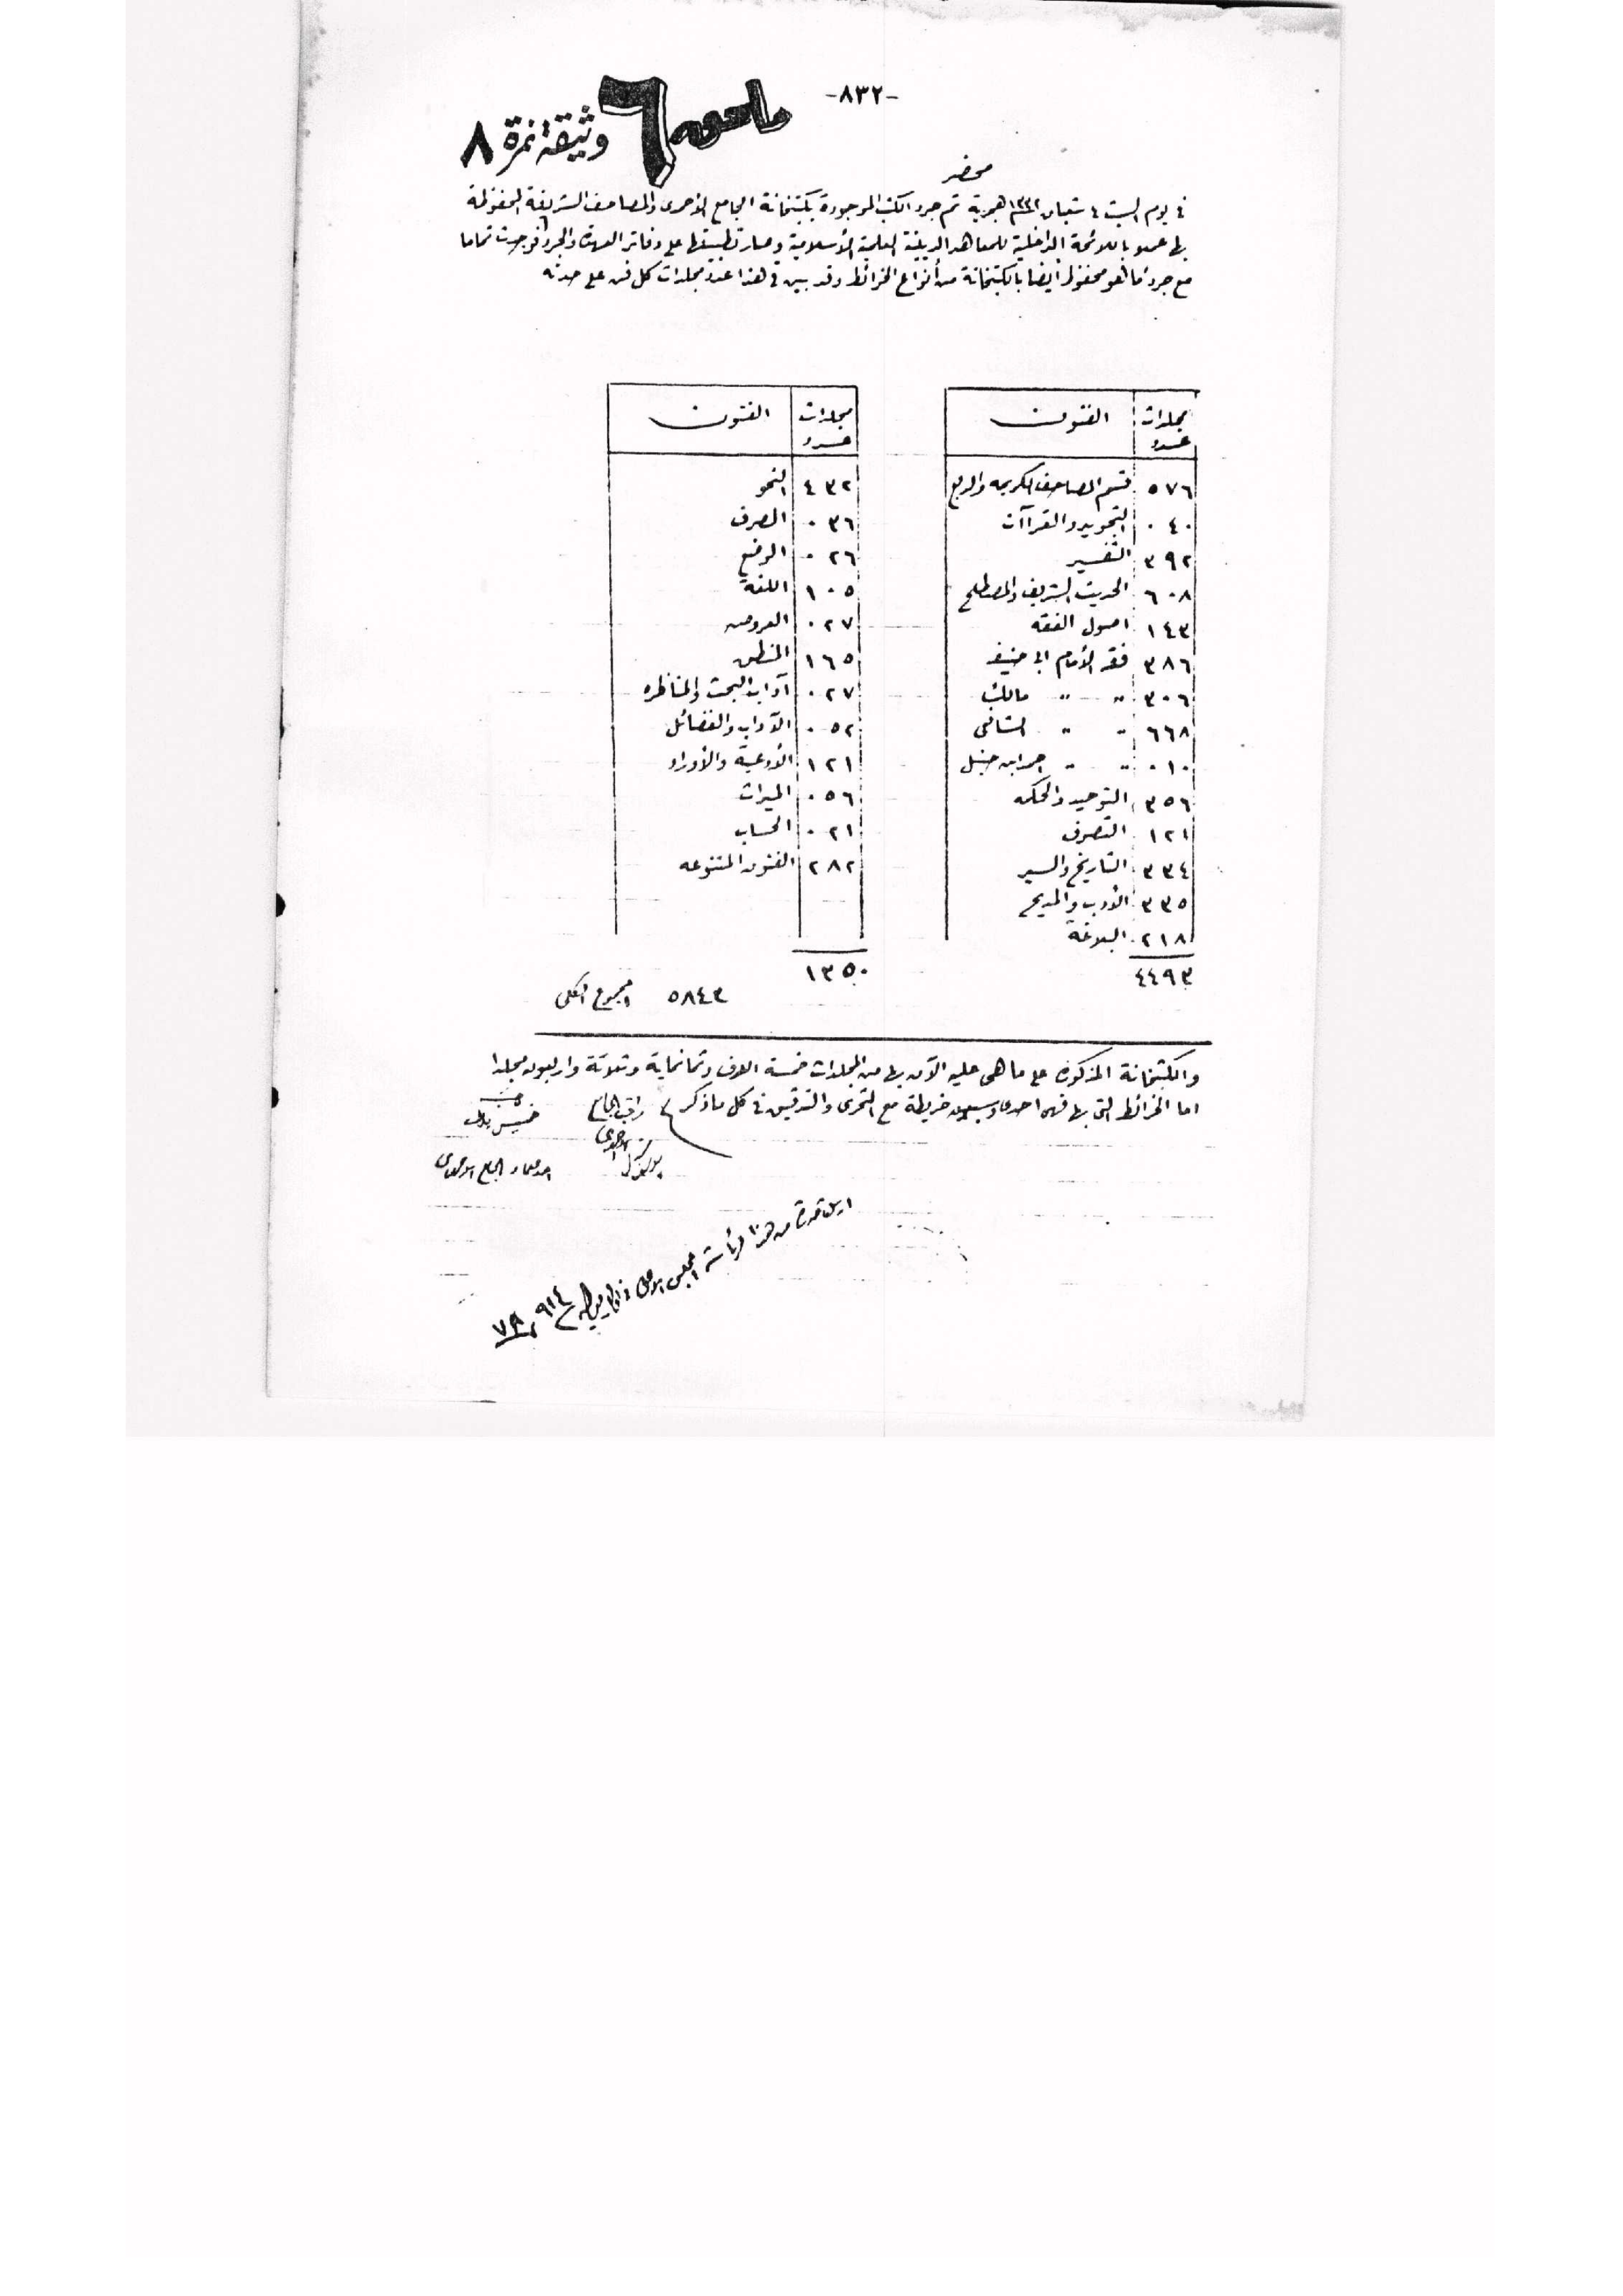 -٨٣٢-
ملحق ٦ وثيقة نمرة ٨
محضر
في يوم السبت ٤ شعبان هجرية تم جرد الكتب الموجودة بكتبخانة الجامع الأحمدى والمصاحف الشريفة المحفوظة
بها عملا باللائحة الداخلية للمعاهد الدينية العلمية الأسلامية وصار تطبيقها على دفاتر العهدة والجرد فوجدت تماما
مع جرد ما هو محفوظ أيضا بالكتبخانة من أنواع الخرائط وقد بين في هذا عدد مجلدات كل فن على حدته
مجلدات عدد الفنون
٥٧٦ قسم المصاحف الكريمه والربع
٠٤٠ التجويد والقراآت
٣٩٢ التفسير
٦٠٨ الحديث الشريف والمصطلح
١٤٣ اصول الفقه
٣٨٦ فقه الأمام ابى حنيفه
٣٠٦ " " مالك
٦٦٨ " " الشافعى
٠١٠ " " احمد ابن حنبل
٣٥٦ التوحيد والحكمه
١٢١ التصوف
٣٣٤ التاريخ والسير
٣٣٥ الأدب والمديح
٢١٨ البلاغة
٤٤٩٣
مجلدات عدد الفنون
٤٣٢ النحو
٠٣٦ الصرف
٠٢٦ الوضع
١٠٥ اللغة
٠٢٧ العروض
١٦٥ المنطق
٠٢٧ آداب البحث والمناظره
٠٥٢ الآداب والفضائل
١٢١ الأدعية والأوراد
٠٥٦ الميراث
٠٢١ الحساب
٢٨٢ الفنون المتنوعه
١٣٥٠
٥٨٤٣ المجموع الكلى
والكتبخانة المذكورة على ما هى عليه الآن بها من المجلدات خمسة الاف وثمانماية وثلاثة واربعون مجلدا
اما الخرائط التى بها فهى احدى وسبعون خريطة مع التحرى والتدقيق في كل ما ذكر
احد علماء الجامع الاحمدى